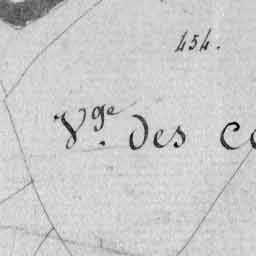 454.
V.ge des co